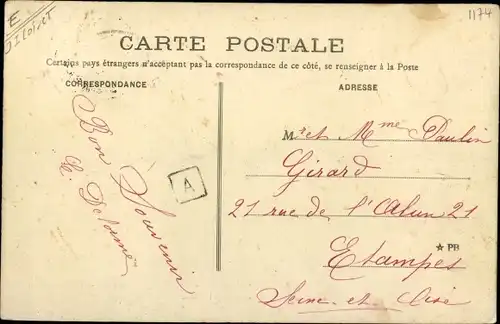 E
1174
CARTE POSTALE
Certains pays étrangers n'acceptant pas la correspondance de ce côté, se renseigner à la Poste
CORRESPONDANCE
ADRESSE
Bon Souvenir
A
Mr et Mme Paulin
Girard
21 rue de l' 21
★ PB
Etampes
Seine-et-Oise